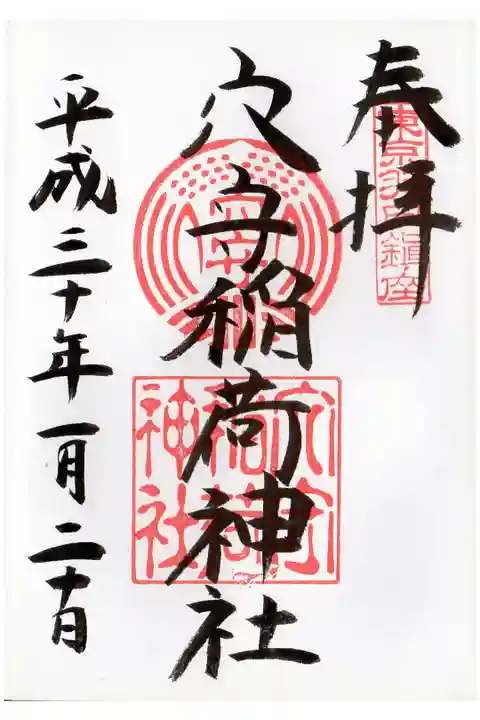 奉拝
東京羽田鎮座
穴守稲荷神社
穴守
稲荷
神社
平成三十年一月二十日